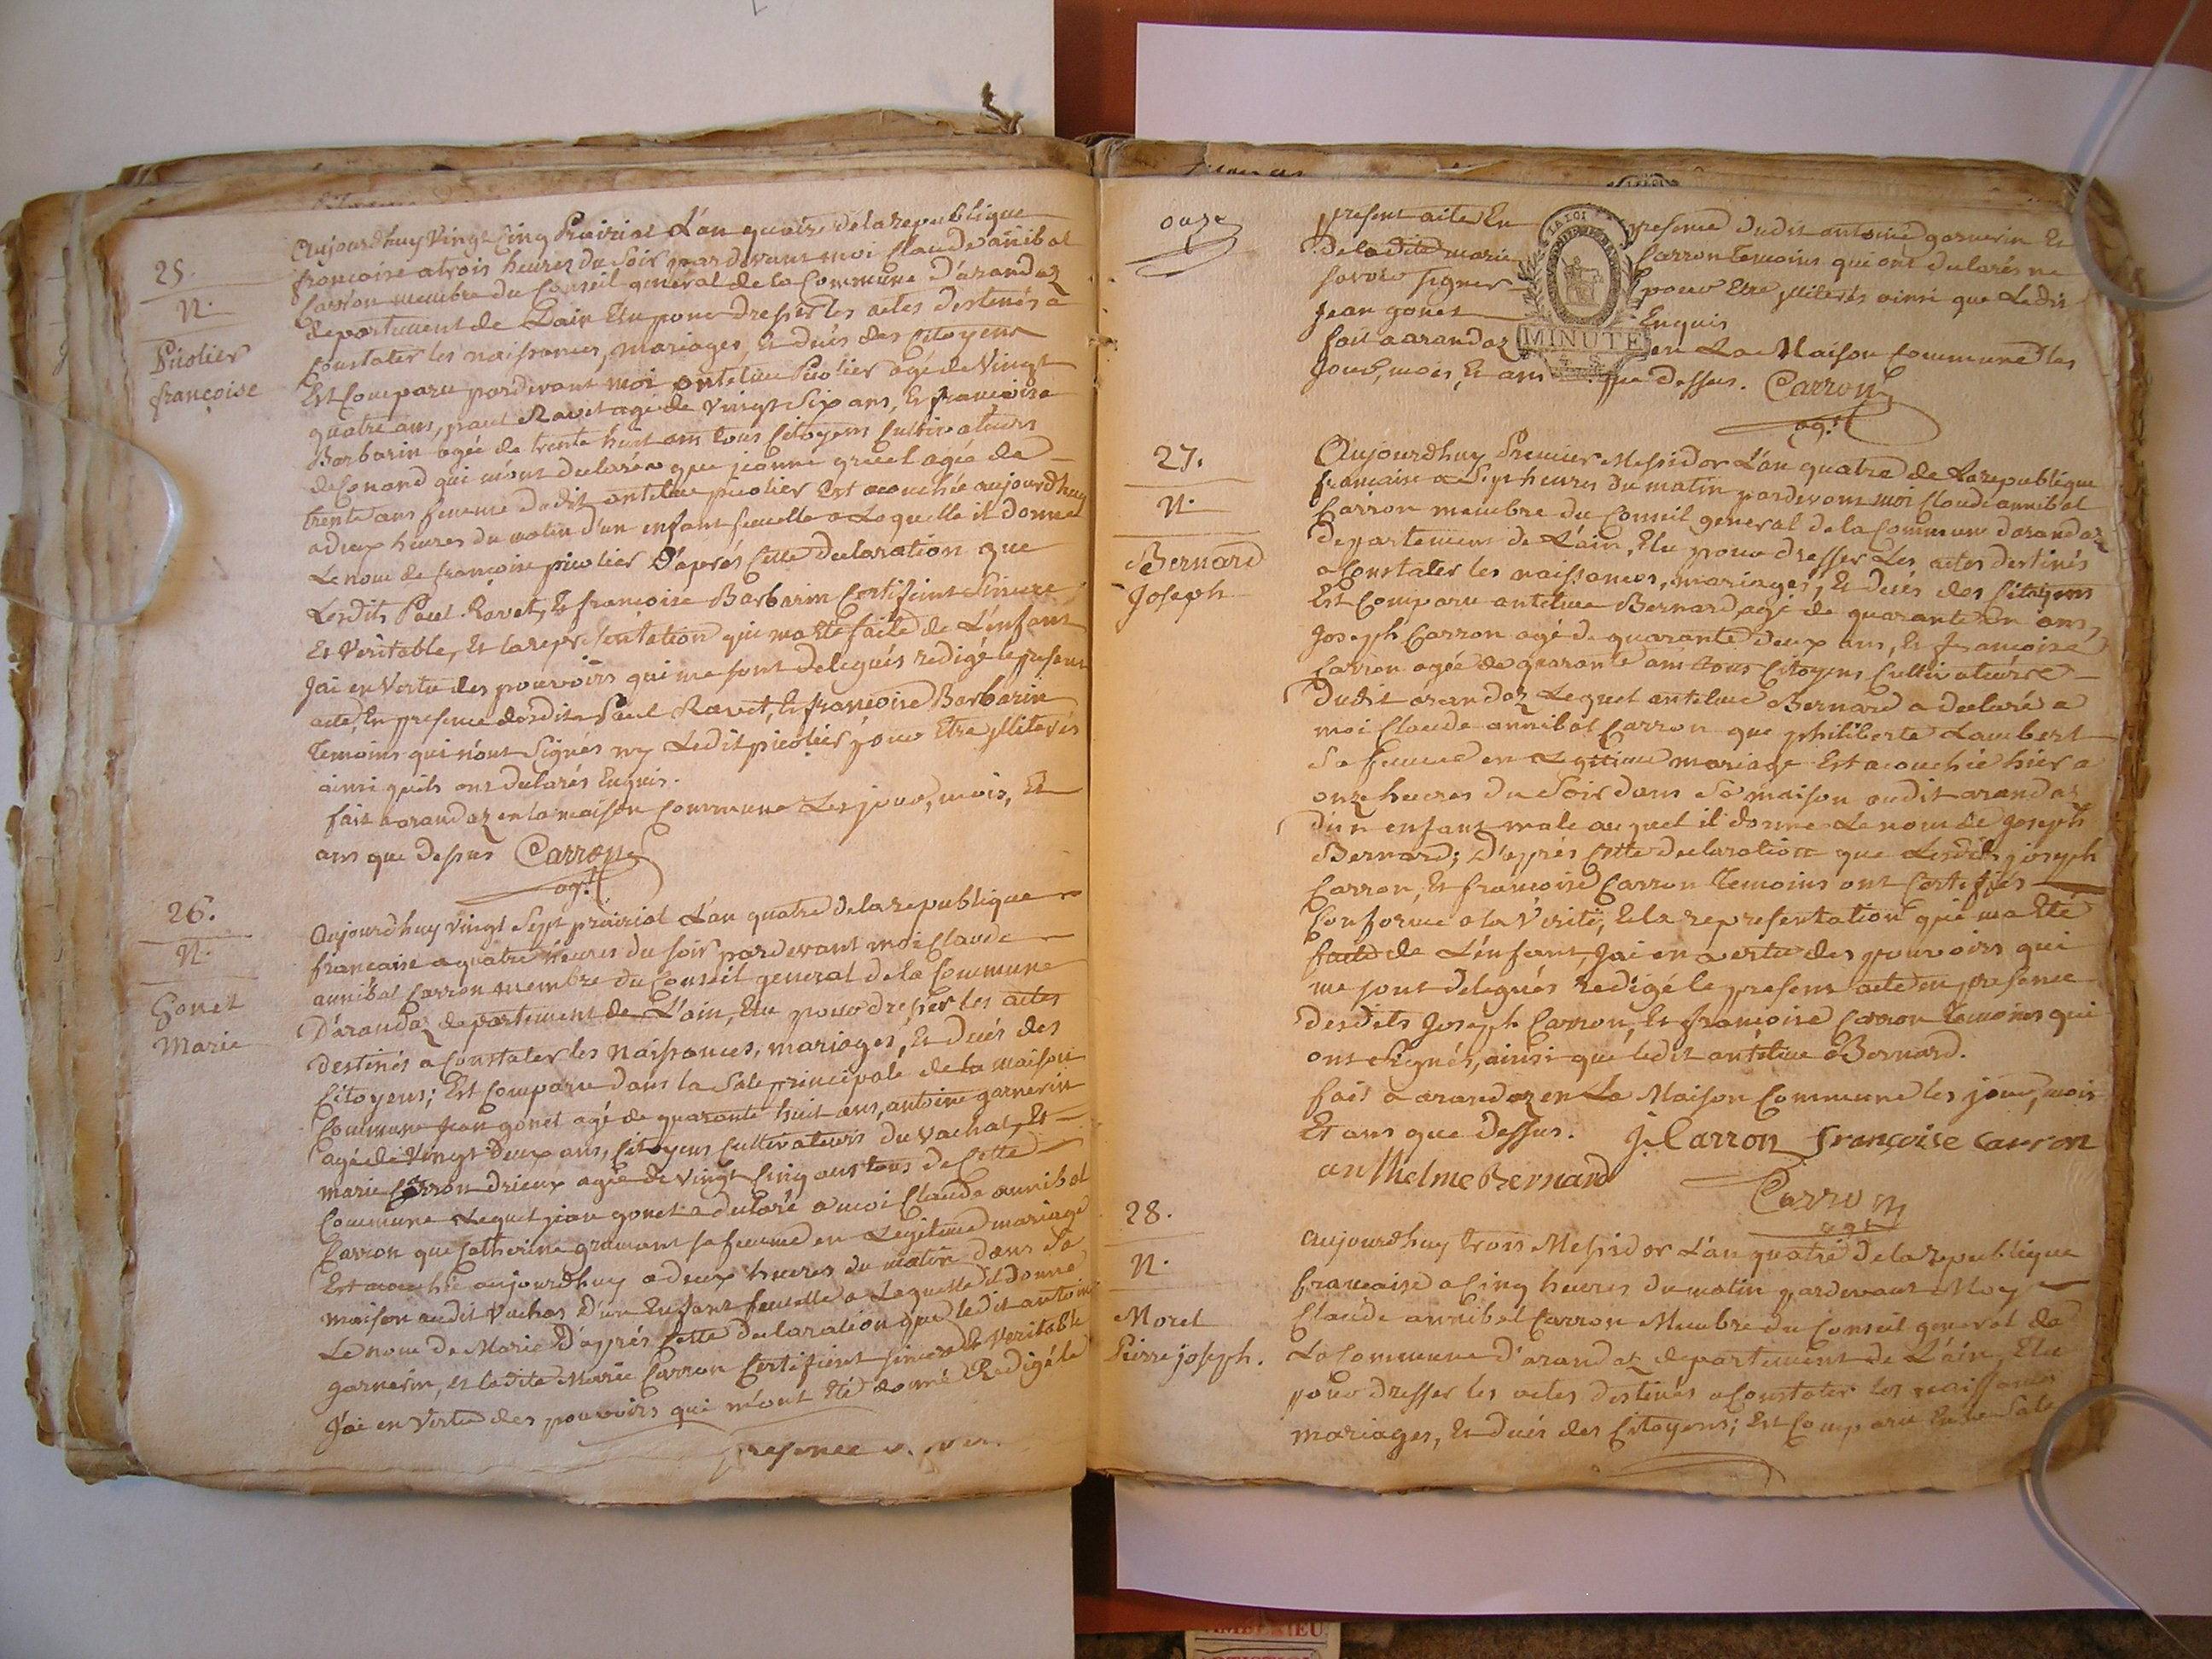 25.
N.
Picolier
françoise
Aujourdhuy Vingt Cinq Prairial L'an quatre de la republique
françoise a trois heures du Soir pardevant moi Claude anibal
Carron membre du Conseil general de la Commune D'arandaz
departement de L'ain Elu pour dresser les actes destinés a
Constater les naissances, mariages, et decés des Citoyens
Est Comparu pardevant moi antelme Picolier agé de Vingt
quatre ans, paul Ravet agé de Vingt Six ans, Et françoise
Barbarin agée de trente huit ans tous Citoyens Cultivateurs
de Conand qui m'ont declarés que jeanne agée de
trente ans femme dudit antelme picolier Est acouchée aujourdhuy
a deux heures du matin d'un enfant femelle a Laquelle il donne
Le nom de françoise picolier D'aprés Cette declaration que
Lesdits Paul Ravet, Et françoise Barbarin Certifient Sincere
Et Veritable, Et la representation qui ma Eté faite de L'enfant
Jai en Vertu des pouvoirs qui me sont delegués redigé le present
acte, En presence desdits Paul Ravet, Et françoise Barbarin
Temoins qui n'ont Signés ny Ledit picolier pour Etre illiterés
ainsi quils ont declarés Enquis.
fait a arandaz en la maison Commune Les jour, mois, Et
ans que dessus Carron
agt
26.
N.
Gonet
Marie
Aujourdhuy Vingt Sept prairial L'an quatre de la republique
francaise a quatre heures du soir pardevant moi Claude
annibal Carron membre du Conseil general de la Commune
D'arandaz departement de L'ain, Elu pour dresser les actes
destinés a Constater les Naissances, mariages, Et decés des
Citoyens; Est Comparu dans la Sale principale de la maison
Commune Jean gonet agé de quarante huit ans, antoine garnerin
agé de Vingt Deux ans, Citoyens Cultivateurs du Vachat, Et
marie Carron drieux agée de Vingt Cinq ans tous de Cette
Commune Lequel jean gonet a declaré a moi Claude annibal
Carron que Catherine grumant sa femme en Legitime mariage
Est acouchée aujourdhuy a deux heures du matin dans Sa
maison audit Vachat d'un Enfant femelle a Laquelle il Donne
Le nom de Marie D'aprés Cette declaration que ledit antoine
garnerin, et ladite Marie Carron Certifient Sincere Et Veritable
J'ai en Vertu des pouvoirs qui m'ont Eté donné Redigé le
onze
present acte En presence dudit antoine garnerin Et
De ladite marie Carron Temoins qui ont declarés ne
savoir signer pour Etre illiterés ainsi que Ledit
Jean gonet Enquis
fait a arandaz en La Maison Commune les
Jour, mois, Et ans que dessus. Carron
agt
LA LOI
MINUTE
27.
N.
Bernard
Joseph
Aujourdhuy Premier Messidor L'an quatre de la republique
francaise a Sept heures du matin pardevant moi Claude annibal
Carron membre du Conseil general de la Commune darandaz
departement de L'ain, Elu pour dresser Les actes destinés
a Constater les naissances, mariages, Et decés des Citoyens
Est Comparu antelme Bernard agé de quarante un ans,
Joseph Carron agé de quarante deux ans, Et françoise
Carron agée de quarante ans tous Citoyens Cultivateurs
Dudit arandaz Lequel antelme Bernard a declaré a
moi Claude annibal Carron que philiberte Lambert
Sa femme en Legitime mariage Est acouchée hier a
onze heures du Soir dans Sa maison audit arandaz
d'un enfant male auquel il donne Le nom de Joseph
Bernard; D'aprés Cette declaration que Lesdits joseph
Carron, Et françoise Carron Temoins ont Certifiés
Conforme a la Verité, Et la representation qui ma Eté
faite de L'enfant, Jai en vertu des pouvoirs qui
me sont delegués redigé le present acte en presence
Desdits Joseph Carron, Et françoise Carron Temoins qui
ont Signés, ainsi que ledit antelme Bernard.
fait a arandaz en La Maison Commune les jour, mois
Et ans que Dessus. J. Carron françoise carron
anthelme Bernard
Carron
agt
28.
N.
Moret
Pierre joseph.
Aujourdhuy trois Messidor L'an quatre de la republique
francaise a Cinq heures du matin pardevant Moy
Claude annibal Carron Membre du Conseil general de
La Commune D'arandaz departement de L'ain, Elu
pour dresser les actes destinés a Constater les naissances
mariages, Et decés des Citoyens; Est Comparu En La Sale